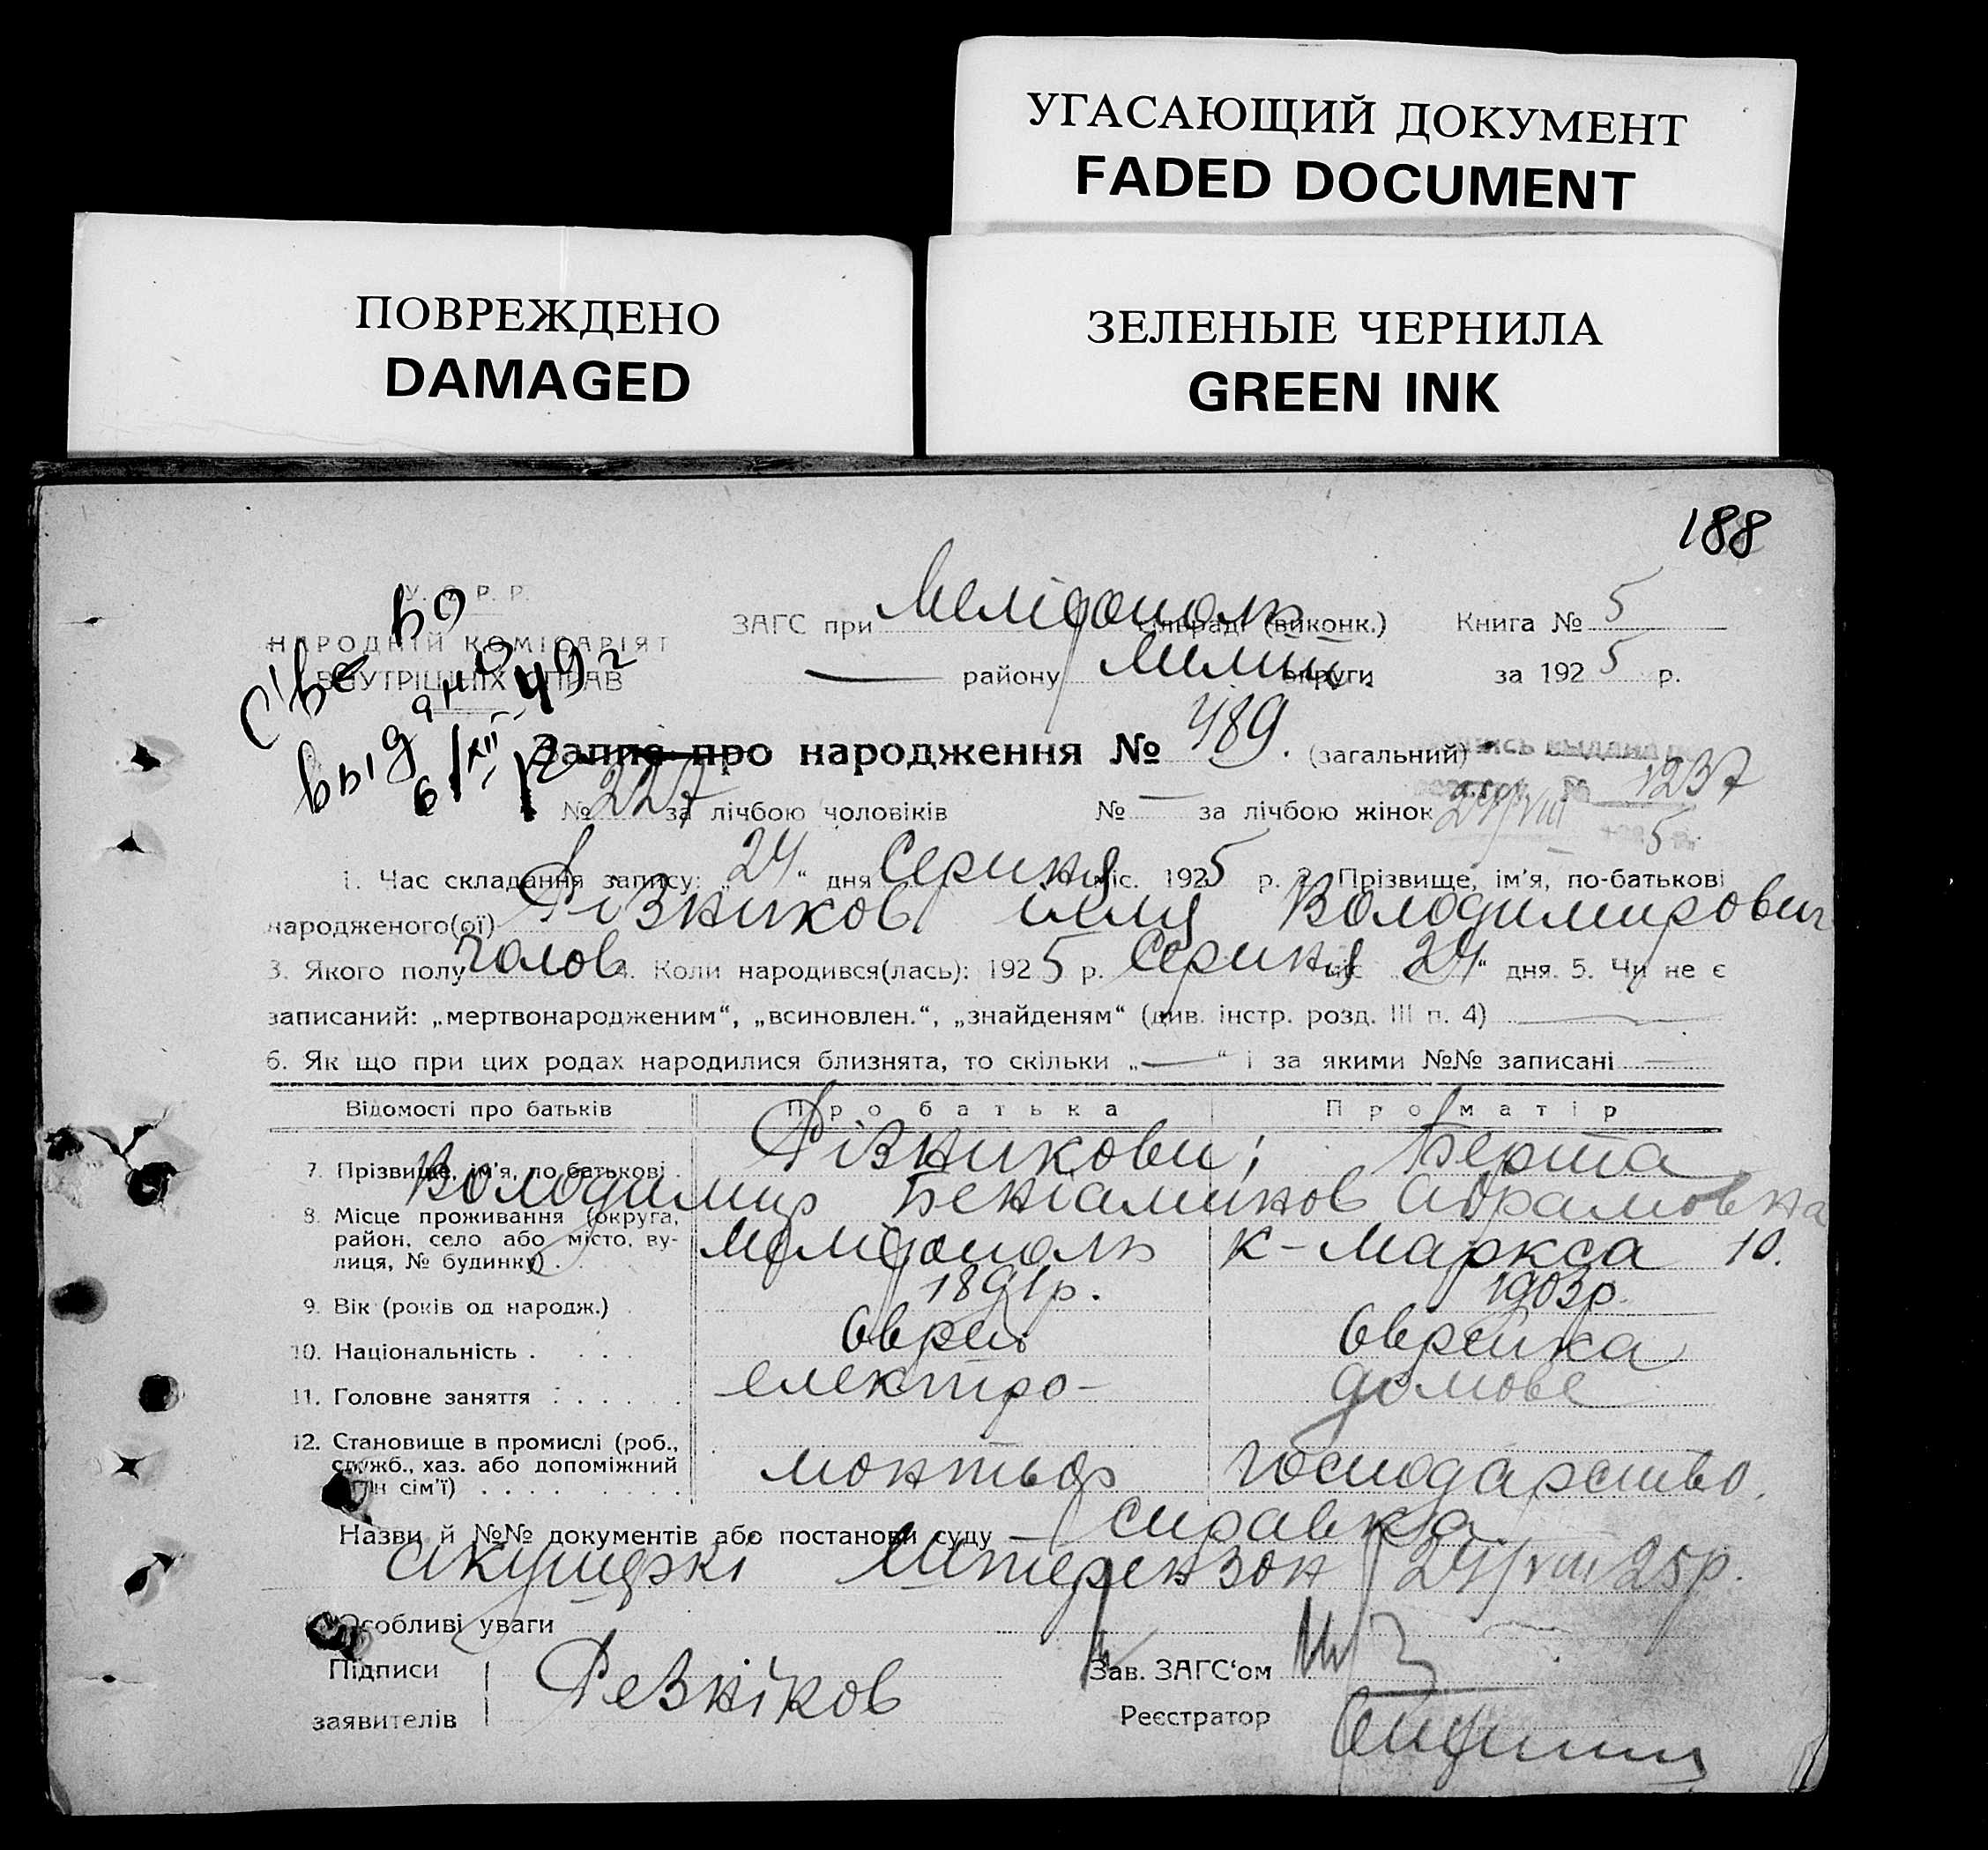 УГАСАЮЩИЙ ДОКУМЕНТ
FADED DOCUMENT
ПОВРЕЖДЕНО
DAMAGED
ЗЕЛЕНЫЕ ЧЕРНИЛА
GREEN INK
188
У. С. Р. Р.
НАРОДНІЙ КОМІСАРІЯТ
ВНУТРІШНІХ СПРАВ
ЗАГС при Мелітополь сільраді (виконк.) Книга № 5
— району Меліт. округи за 1925 р.
Запис про народження № 489. (загальний)
№ 227 за лічбою чоловіків № — за лічбою жінок
1237
24/VIII 5
1. Час складання запису: „24“ дня Серпня міс. 1925 р. 2. Прізвище, ім'я, по-батькові
народженого(ої) Різников Ілля Володимирович
3. Якого полу чолов 4. Коли народився(лась): 1925 р. Серпня міс 24“ дня. 5. Чи не є
записаний: „мертвонародженим“, „всиновлен.“, „знайденям“ (див. інстр. розд. III п. 4) —
6. Як що при цих родах народилися близнята, то скільки „—“ і за якими №№ записані —
Відомості про батьків Про батька Про матір
7. Прізвище, ім'я, по батькові Різникови; Берта
Володимир Беніамінов Абрамовна
8. Місце проживання (округа, район, село або місто, ву-
лиця, № будинку) Мелітополь К-Маркса 10.
9. Вік (років од народж.) 1891р. 1903р.
10. Національність Єврей Єврейка
11. Головне заняття електро- домове
12. Становище в промислі (роб.,
служб., хаз. або допоміжний монтьор господарство.
член сім'ї)
Назви й №№ документів або постанови суду — справка
акушерки Штерензон 24/VIII 25р.
Особливі уваги
Підписи Резніков Зав. ЗАГС‘ом
заявителів Реєстратор